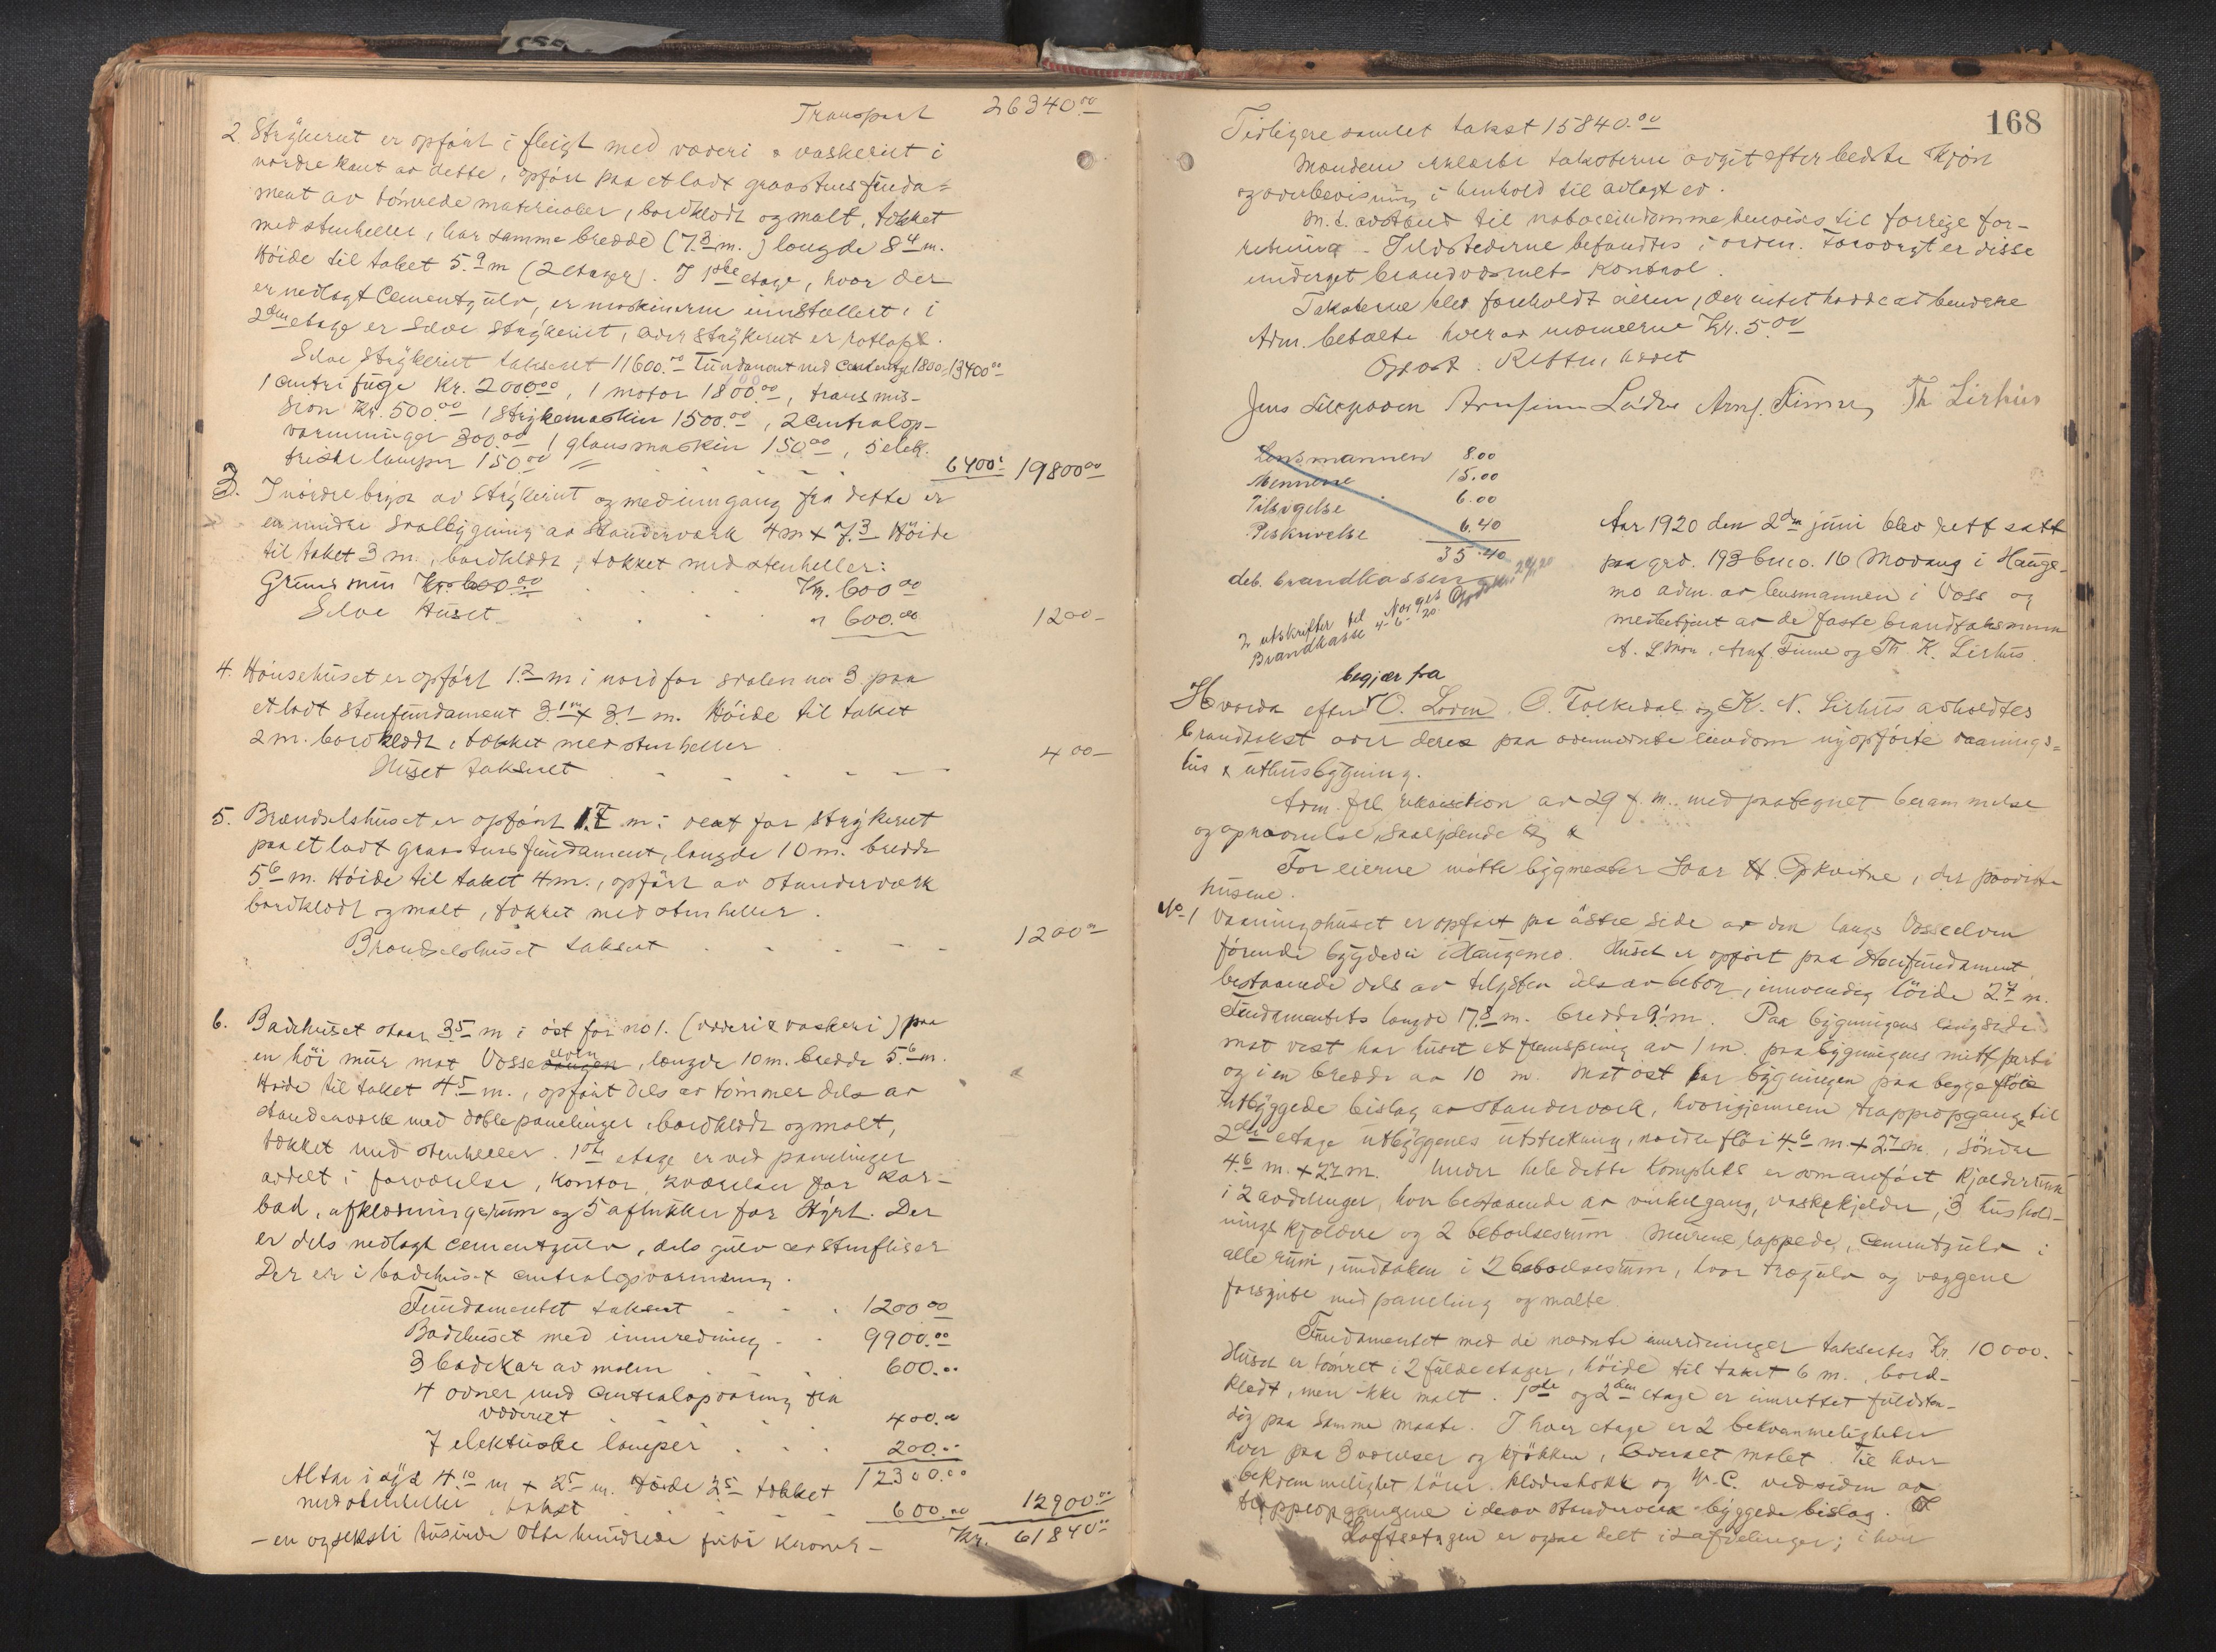 Transport 26340.00
2. Strykeriet er opført i fleigt med væveri & vaskeriet i
nordre kant av dette, opført paa et lødt graastensfunda=
ment av tømrede materialer, bordklædt og malt, tækket
med stenheller, har samme bredde (7.3 m.) længde 8.4 m.
Høide til taket 5.9 m (2 etager). I 1ste etage, hvor der
er nedlagt Cementgulv, er maskinerne innstallert, i
2den etage er selve strykeriet, over strykeriet er rotloft.
Selve strykeriet taksert 11600.00 Fundament med Cementgl 1800= 13400.00
1 centrifuge Kr. 2000.00, 1 motor 1800.00, transmis-
sion Kr. 500.00 1 strykemaskin 1500.00, 2 centralop-
varmninger 300.00 1 glansmaskin 150.00, 5 elek.
triske lamper 150.00 6400: 19800.00
3. I nordre bryst av strykeriet og med inngang fra dette er
en mindre svalbygning av Standerværk 4 m x 7.3 Høide
til taket 3 m., bordklædt, tækket med stenheller:
Grunnmur Kr. 600.00 Kr. 600.00
Selve Huset " 600.00 1200-
4. Hønsehuset er opført 1.2 m i nord for svalen no 3. paa
et lødt stenfundament 3.1 m x 3.1 m. Høide til taket
2 m. bordklædt, tækket med stenheller
Huset taksert 400-
5. Brændselshuset er opført 1.7 m i vest for strykeriet
paa et lødt graastensfundament, længde 10 m. bredde
5.6 m. Høide til taket 4 m., opført av standerværk
bordklædt og malt, tækket med stenheller.
Brændselshuset taksert 1200-
6. Badehuset staar 3.5 m i øst for no 1. (væveri & vaskeri) paa
en høi mur mot Vosseelven, længde 10 m. bredde 5.6 m.
Høide til taket 4.5 m., opført dels av tømmer dels av
standerværk med doble panelinger, bordklædt og malt,
tækket med stenheller. 1ste etage er ved panelinger
avdelt i forværelse, kontor, værelser for kar-
bad, afklædningsrum og 5 aflukker for styrt. Der
er dels nedlagt cementgulv, dels gulv av stenfliser
Der er i badehuset centralopvarmning.
Fundamentet taksert 1200.00
Badehuset med innredning 9900.00
3 badekar av malm 600.00
4 ovner med centralopvarmg fra
væveriet 400.00
7 elektriske lamper 200.00
12300.00
Altan i syd 4.10 m x 2.5 m. Høide 2.5 tækket
med stenheller, takst 600.00 12900.00
- en og seksti tusinde otte hundrede firti Kroner - Kr. 61840.00
168
Tidligere samlet takst 15840.00
Mændene erklærte taksterne avgit efter bedste skjøn
og overbevisning i henhold til avlagt ed.
M. h. avstand til naboeiendomme henvises til forrige for-
retning - Ildstederne befandtes i orden. Forøvrigt er disse
underget brandvæsenets kontrol.
Taksterne blev foreholdt eieren, der intet hadde at bemerke
Adm. betalte hver av mændene Kr. 5.00
Oplæst. Retten hævet
Jens Lillegraven Arnfinn Lödve Arnf. Finne Th Lirhus
Lensmannen 8.00
Mennene 15.00
Tilsigelse 6.00
Beskrivelse 6.40
35.40
deb. brandkassen
2 utskrifter til Norges
Brandkasse 4-6-20.
Aar 1920 den 2den juni blev rett satt
paa grd. 193 bno. 16 Movang i Hauge-
mo adm. av lensmannen i Voss og
medbetjent av de faste brandtaksmenn
A. L. Mön, Arnf. Finne og Th. K. Lirhus.
begjær fra
Hvorda efter O. Loven. O. Tolkedal og K. N. Lirhus avholdtes
brandtakst over deres paa ovennevnte eiendom nyopførte vaanings=
hus & uthusbygning.
Adm. frl. rekvisition av 29 f. m. med paategnet berammelse
og opnævnelse saalydende &
For eierne møtte bygmester Ivar H. Opkvitne, der paaviste
husene.
No 1 Vaaningshuset er opført paa östre side av den langs Vosseelven
førende bygdevei i Haugemo. Huset er opført paa Stenfundament
bestaaende dels av telgsten dels av beton, innvendig høide 2.7 m.
Fundamentets længde 17.8 m. bredde 9.1 m. Paa bygningens langside
mot vest har huset et fremspring av 1 m. paa bygningens midtparti
og i en bredde av 10 m. Mot ost har bygningen paa begge fløie
utbyggede bislag av standerværk, hvorigjennem trappopgange til
2den etage utbyggenes utstrekning, nordre flöi 4.6 m. x 2.7 m., söndre
4.6 m. x 2.7 m. Under hele dette kompleks er som anført kjælderrum
i 2 avdelinger, hver bestaaende av vinkelgang, vaskekjelder, 3 hushold-
nings kjældere og 2 beboelsesrum. Murene rappede, cementgulv i
alle rum, undtaken i 2 beboelsesrum, hvor trægulv og væggene
forsynte med paneling og malte
Fundamentet med de nævnte innredninger taksertes Kr. 10000.
Huset er tømret i 2 fulde etager, høide til taket 6 m., bord-
klædt, men ikke malt. 1ste og 2den etage er innrettet fuldsten-
dig paa samme maate. I hver etage er 2 bekvemmeligheter
hver paa 3 værelser og kjøkken, Overalt malet. Til hver
bekvemmelighet hörer klædeskott og W.C. ved siden av
trappeopgangene i de av standerværk byggede bislag.
Loftsetagen er ogsaa delt i 2 afdelinger; i hver